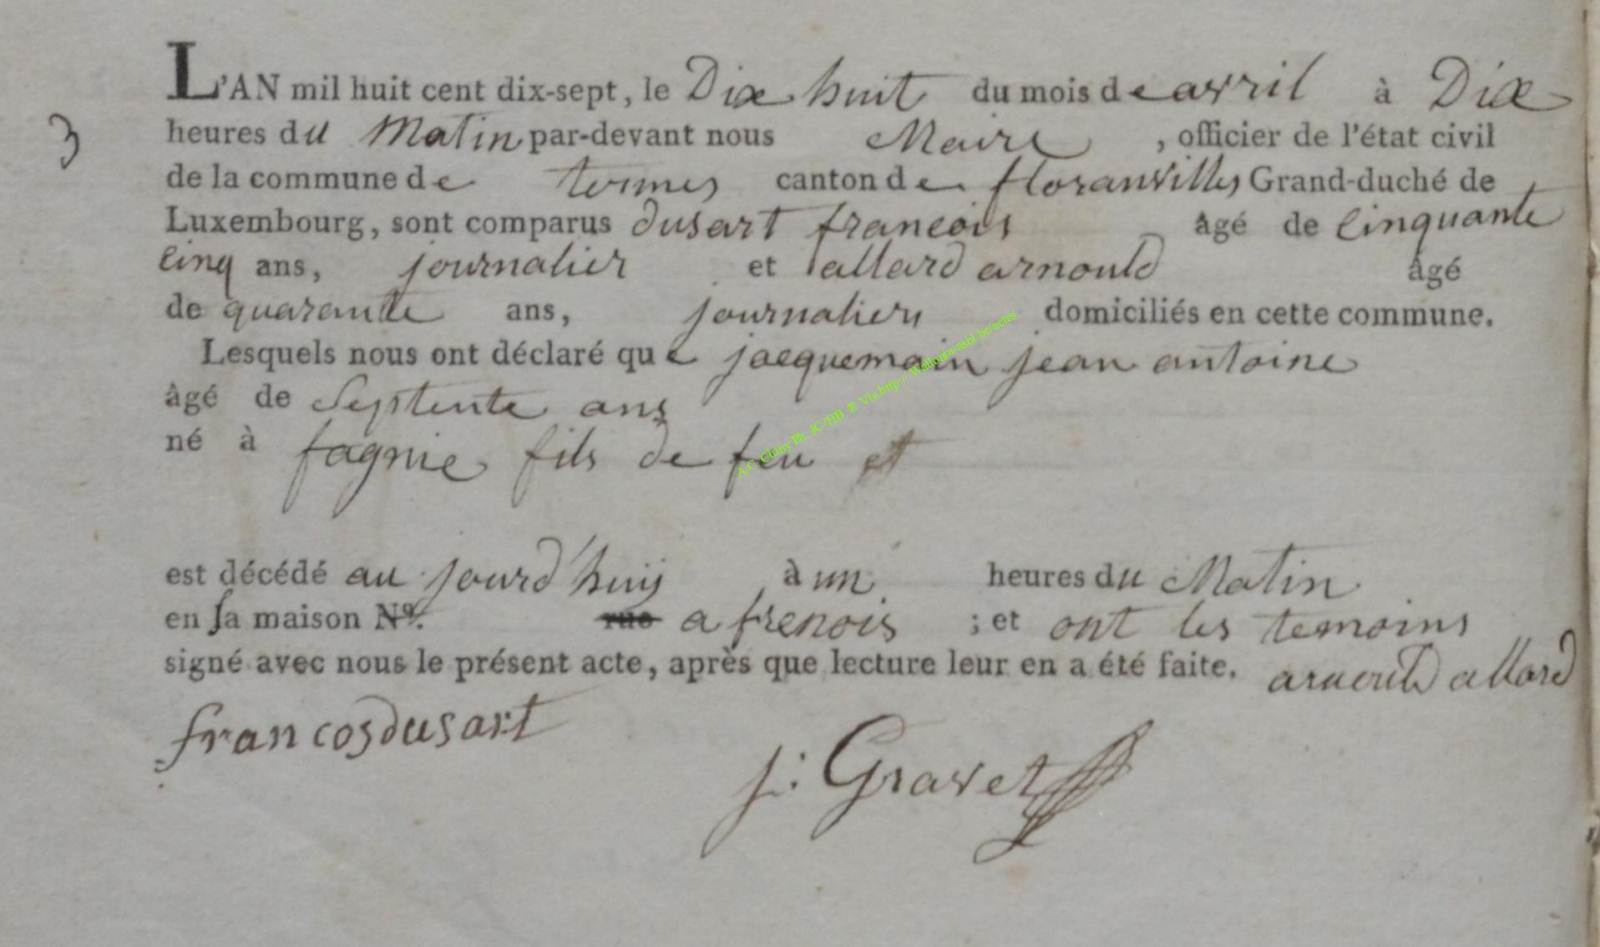 L'AN mil huit cent dix-sept, le Dix huit du mois de avril à Dix
3 heures du Matin par-devant nous Maire , officier de l'état civil
de la commune de termes canton de floranvilles Grand-duché de
Luxembourg, sont comparus dusart francois âgé de Cinquante
Cinq ans, journalier et allard arnould âgé
de quarante ans, journaliers domiciliés en cette commune.
Lesquels nous ont déclaré que jacquemain jean antoine
âgé de Septente ans
né à fagnie fils de feu et
est décédé au jourd'huy à un heures du Matin
en sa maison Nº. rue a frenois ; et ont les temoins
signé avec nous le présent acte, après que lecture leur en a été faite. arnould allard
francosdusart
j: Gravet